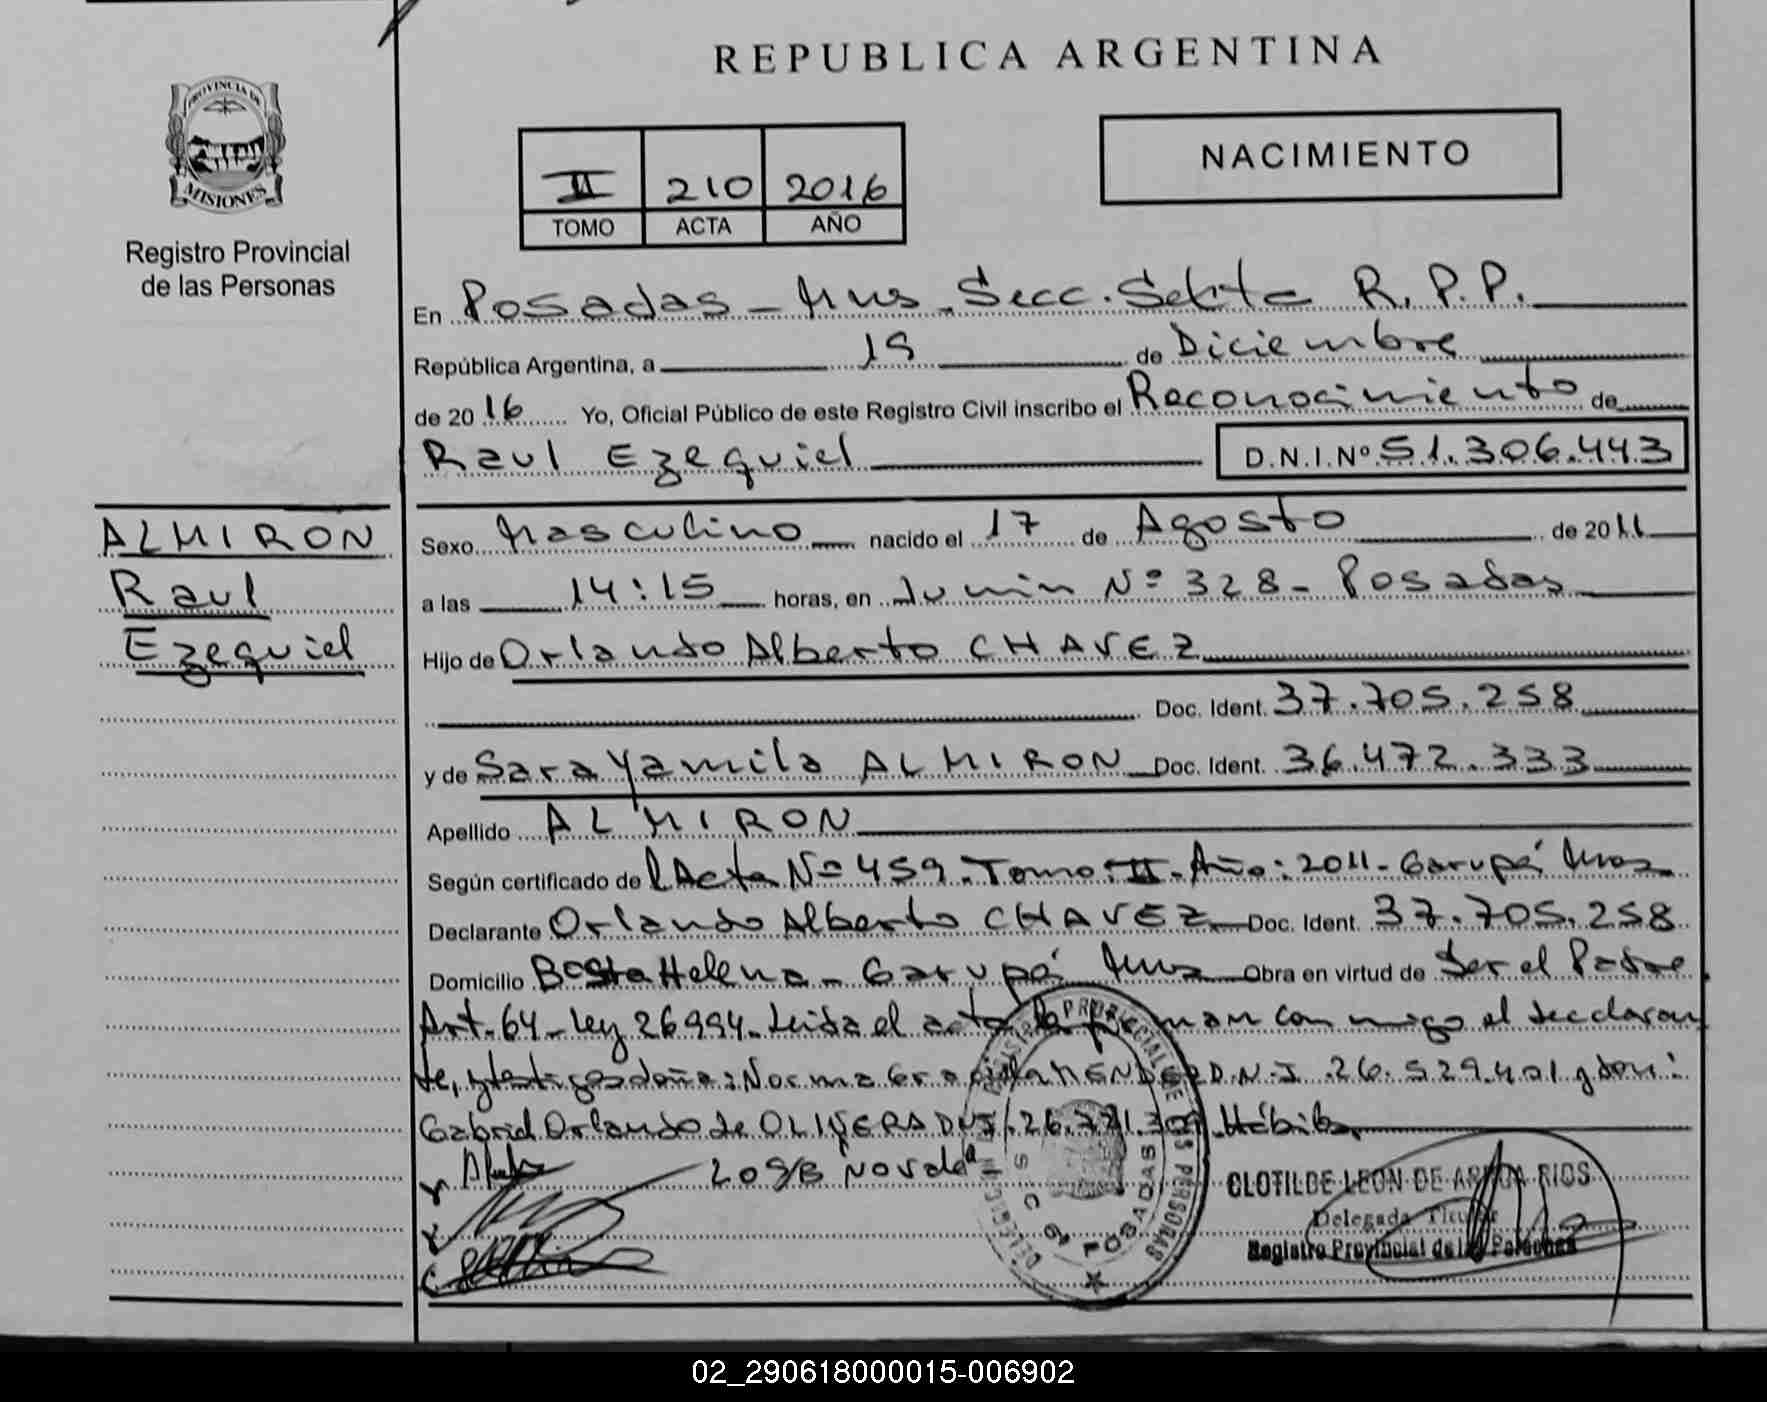 REPUBLICA ARGENTINA
PROVINCIA DE
MISIONES
Registro Provincial
de las Personas
NACIMIENTO
II 210 2016
TOMO ACTA AÑO
En Posadas - Mnes. Secc. R. P. P.
República Argentina, a 19 de Diciembre
de 2016 Yo, Oficial Público de este Registro Civil inscribo el Reconocimiento de
Raul Ezequiel D.N.I.Nº 51.306.443
ALMIRON
Raul
Ezequiel
Sexo Masculino nacido el 17 de Agosto de 2011
a las 14:15 horas, en Junin Nº 328 - Posadas
Hijo de Orlando Alberto CHAVEZ
Doc. Ident. 37.705.258
y de Sara Yamila ALMIRON Doc. Ident. 36.472.333
Apellido ALMIRON
Según certificado de l Acta Nº 459. Tomo: II. Año: 2011 - Garupá
Declarante Orlando Alberto CHAVEZ Doc. Ident. 37.705.258
Domicilio Bº Sta Helena - Garupá Obra en virtud de Ser el Padre
Art. 64 - Ley 26994. Leida el acta la firman conmigo el declaran
te, y testigos doña: Norma D.N.I. 26.529.401 y don:
Gabriel Orlando de OLIVERA DNI 26. Hábiles
20 S/B
CLOTILDE LEON DE RIOS
Delegada Titular
Registro Provincial de las Personas
POSADAS
02_290618000015-006902